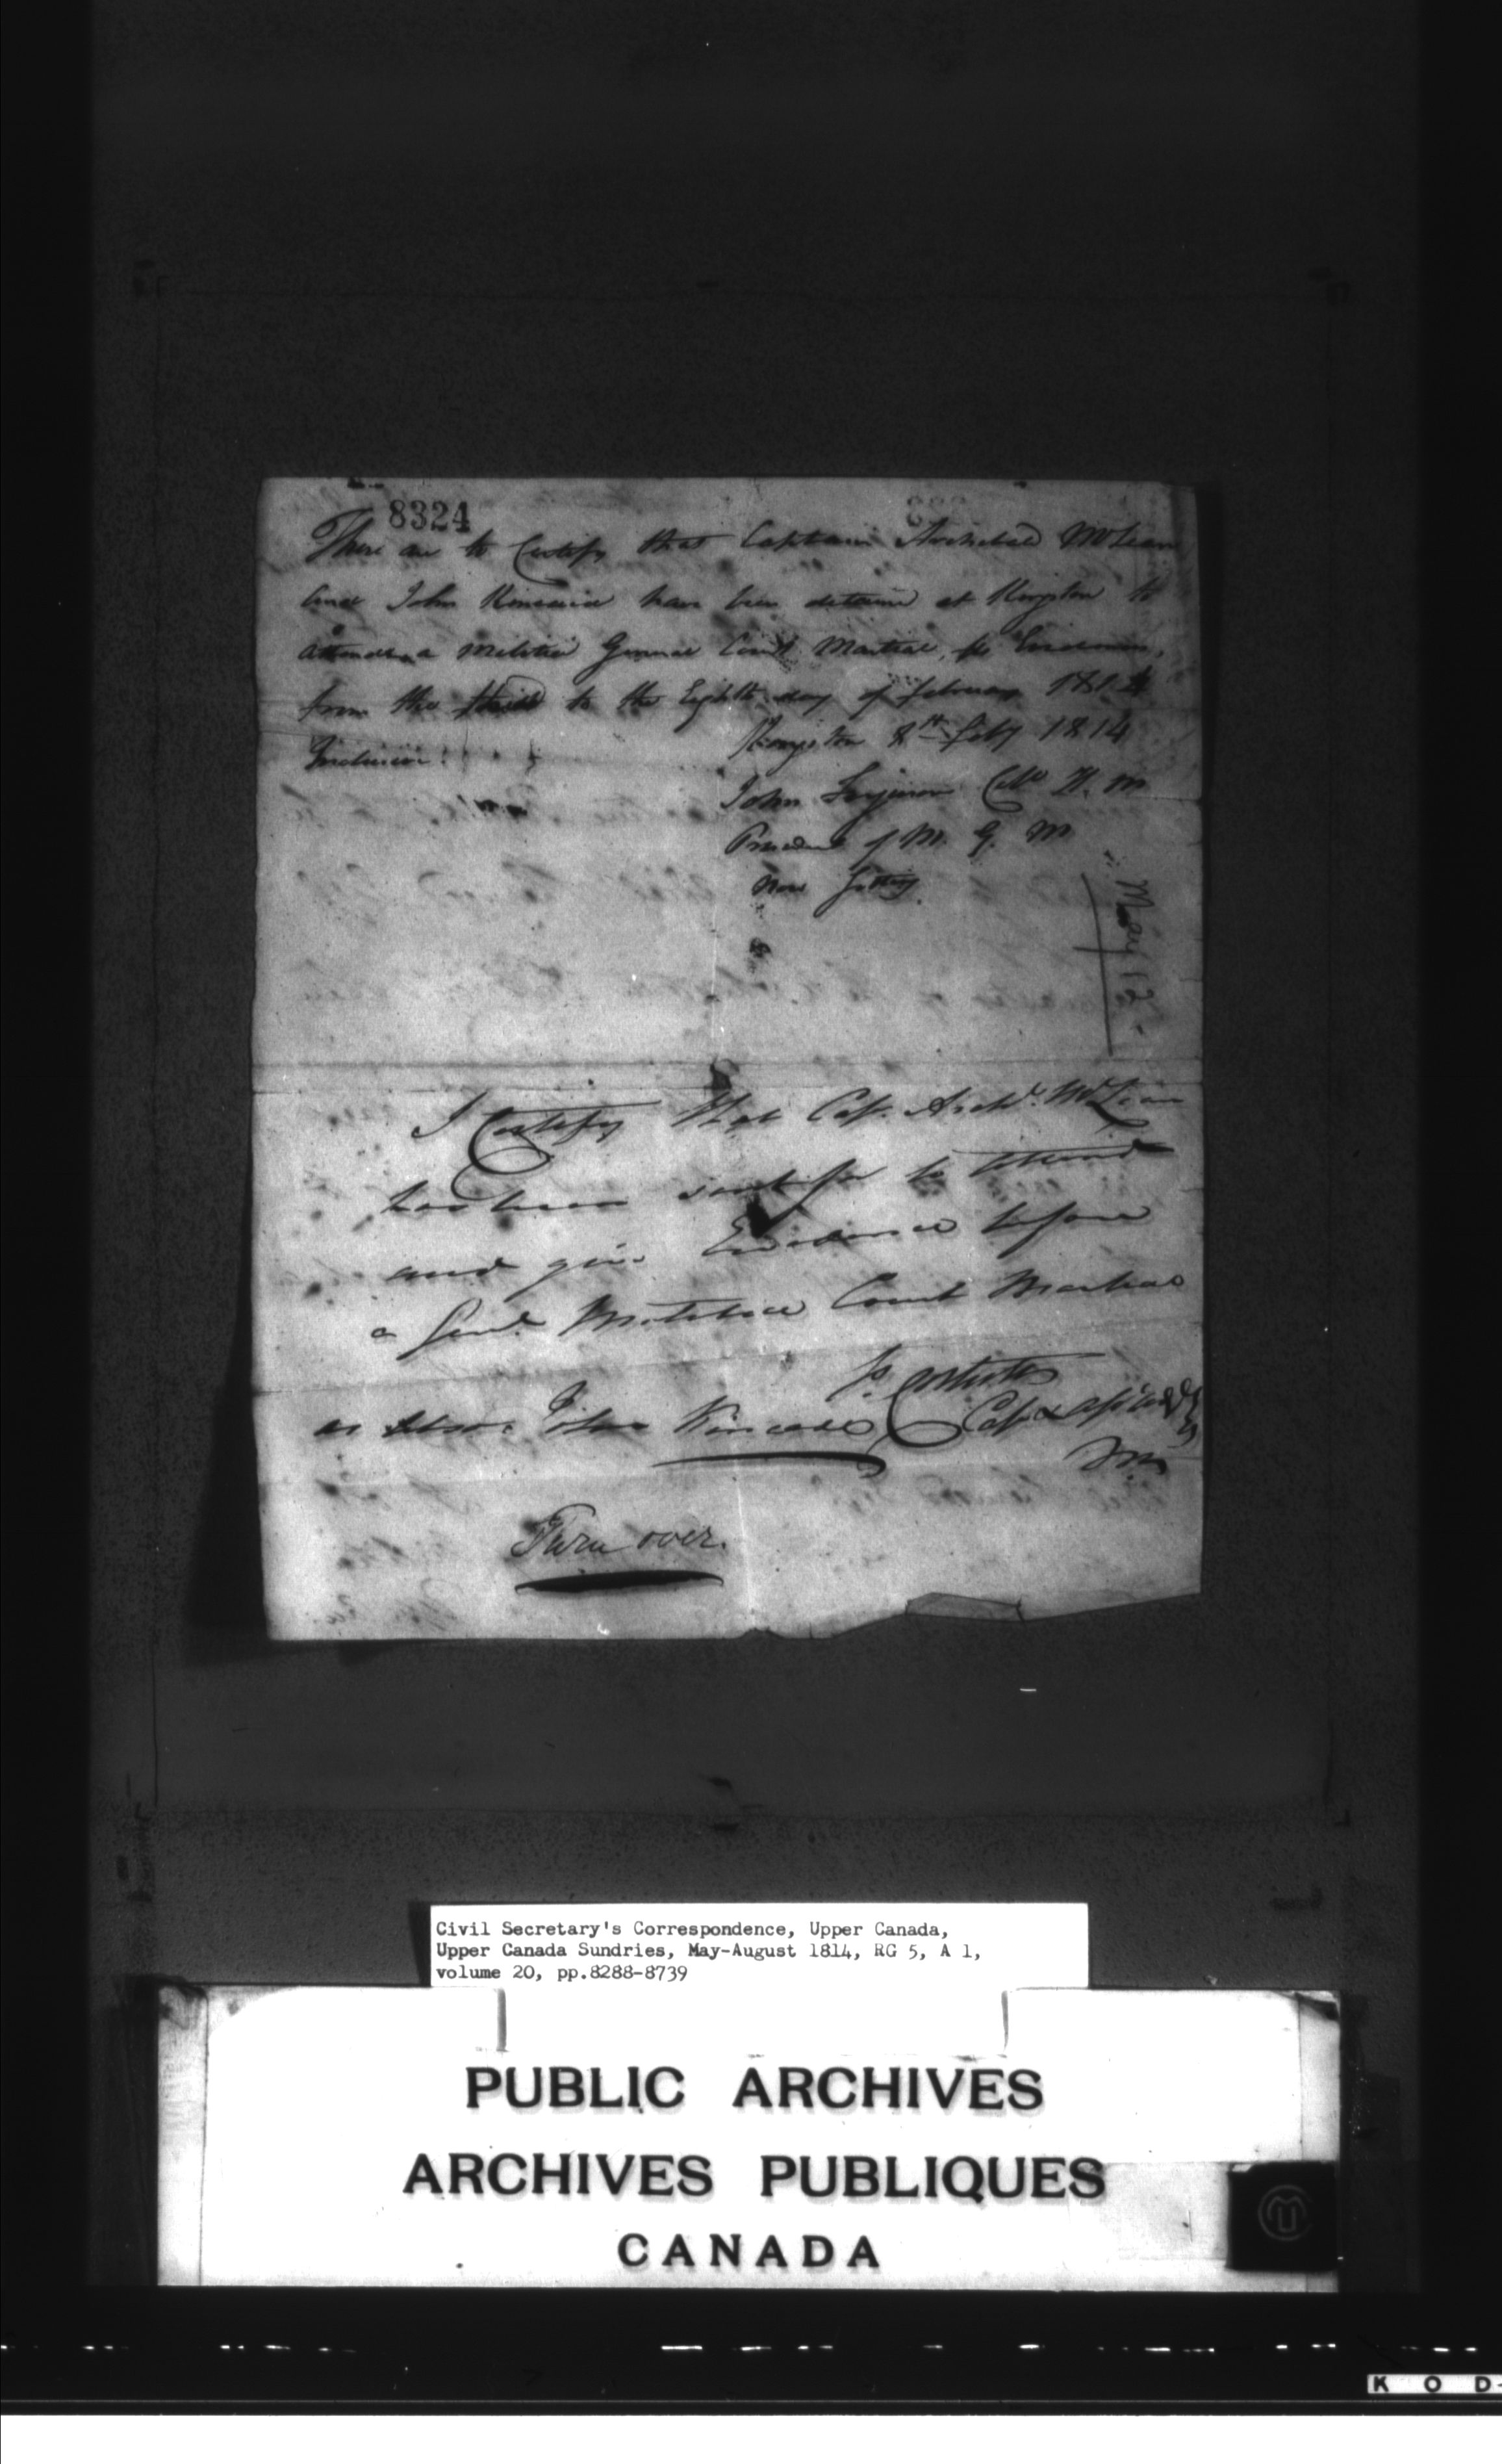 8324
These are to Certify that Captain Archibald McLean
and John Kincaid have been detained at Kingston to
attend a Militia General Court Martial, as Evidences,
from the third to the Eighth day of february 1814
Inclusive.
Kingston 8th feby 1814
John Ferguson Coll
President of M. G. M
now Sitting.
May 12
I Certify that Cap. Archd. McLean
has been sent for to attend
and give Evidence before
a Genl. Militia Court Martial
as also. John Kincade
Turn over.
Civil Secretary's Correspondence, Upper Canada,
Upper Canada Sundries, May-August 1814, RG 5, A 1,
volume 20, pp.8288-8739
PUBLIC ARCHIVES
ARCHIVES PUBLIQUES
CANADA
K O D